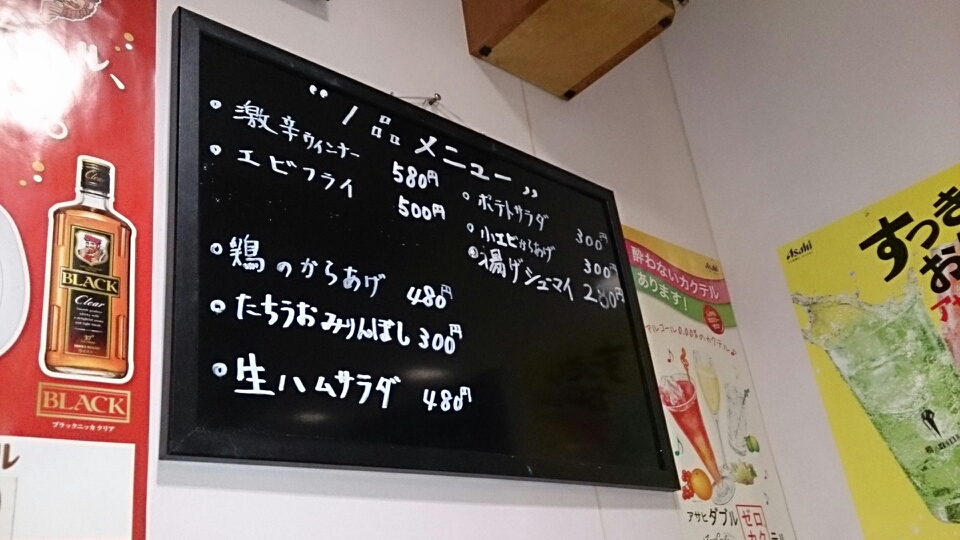 “一品メニュー”
• 激辛ウィンナー 580円
• エビフライ 500円
• 鶏のからあげ 480円
• たちうおみりんぼし 300円
• 生ハムサラダ 480円
• ポテトサラダ 300円
• 小エビからあげ 300円
• 揚げシュウマイ 280円
BLACK
Clear
BLACK
ブラックニッカ クリア
Asahi
酔わないカクテル
あります!
アルコール0.00%のカクテル♪
アサヒダブル
ゼロ
カク
テル
Asahi
すっき
お